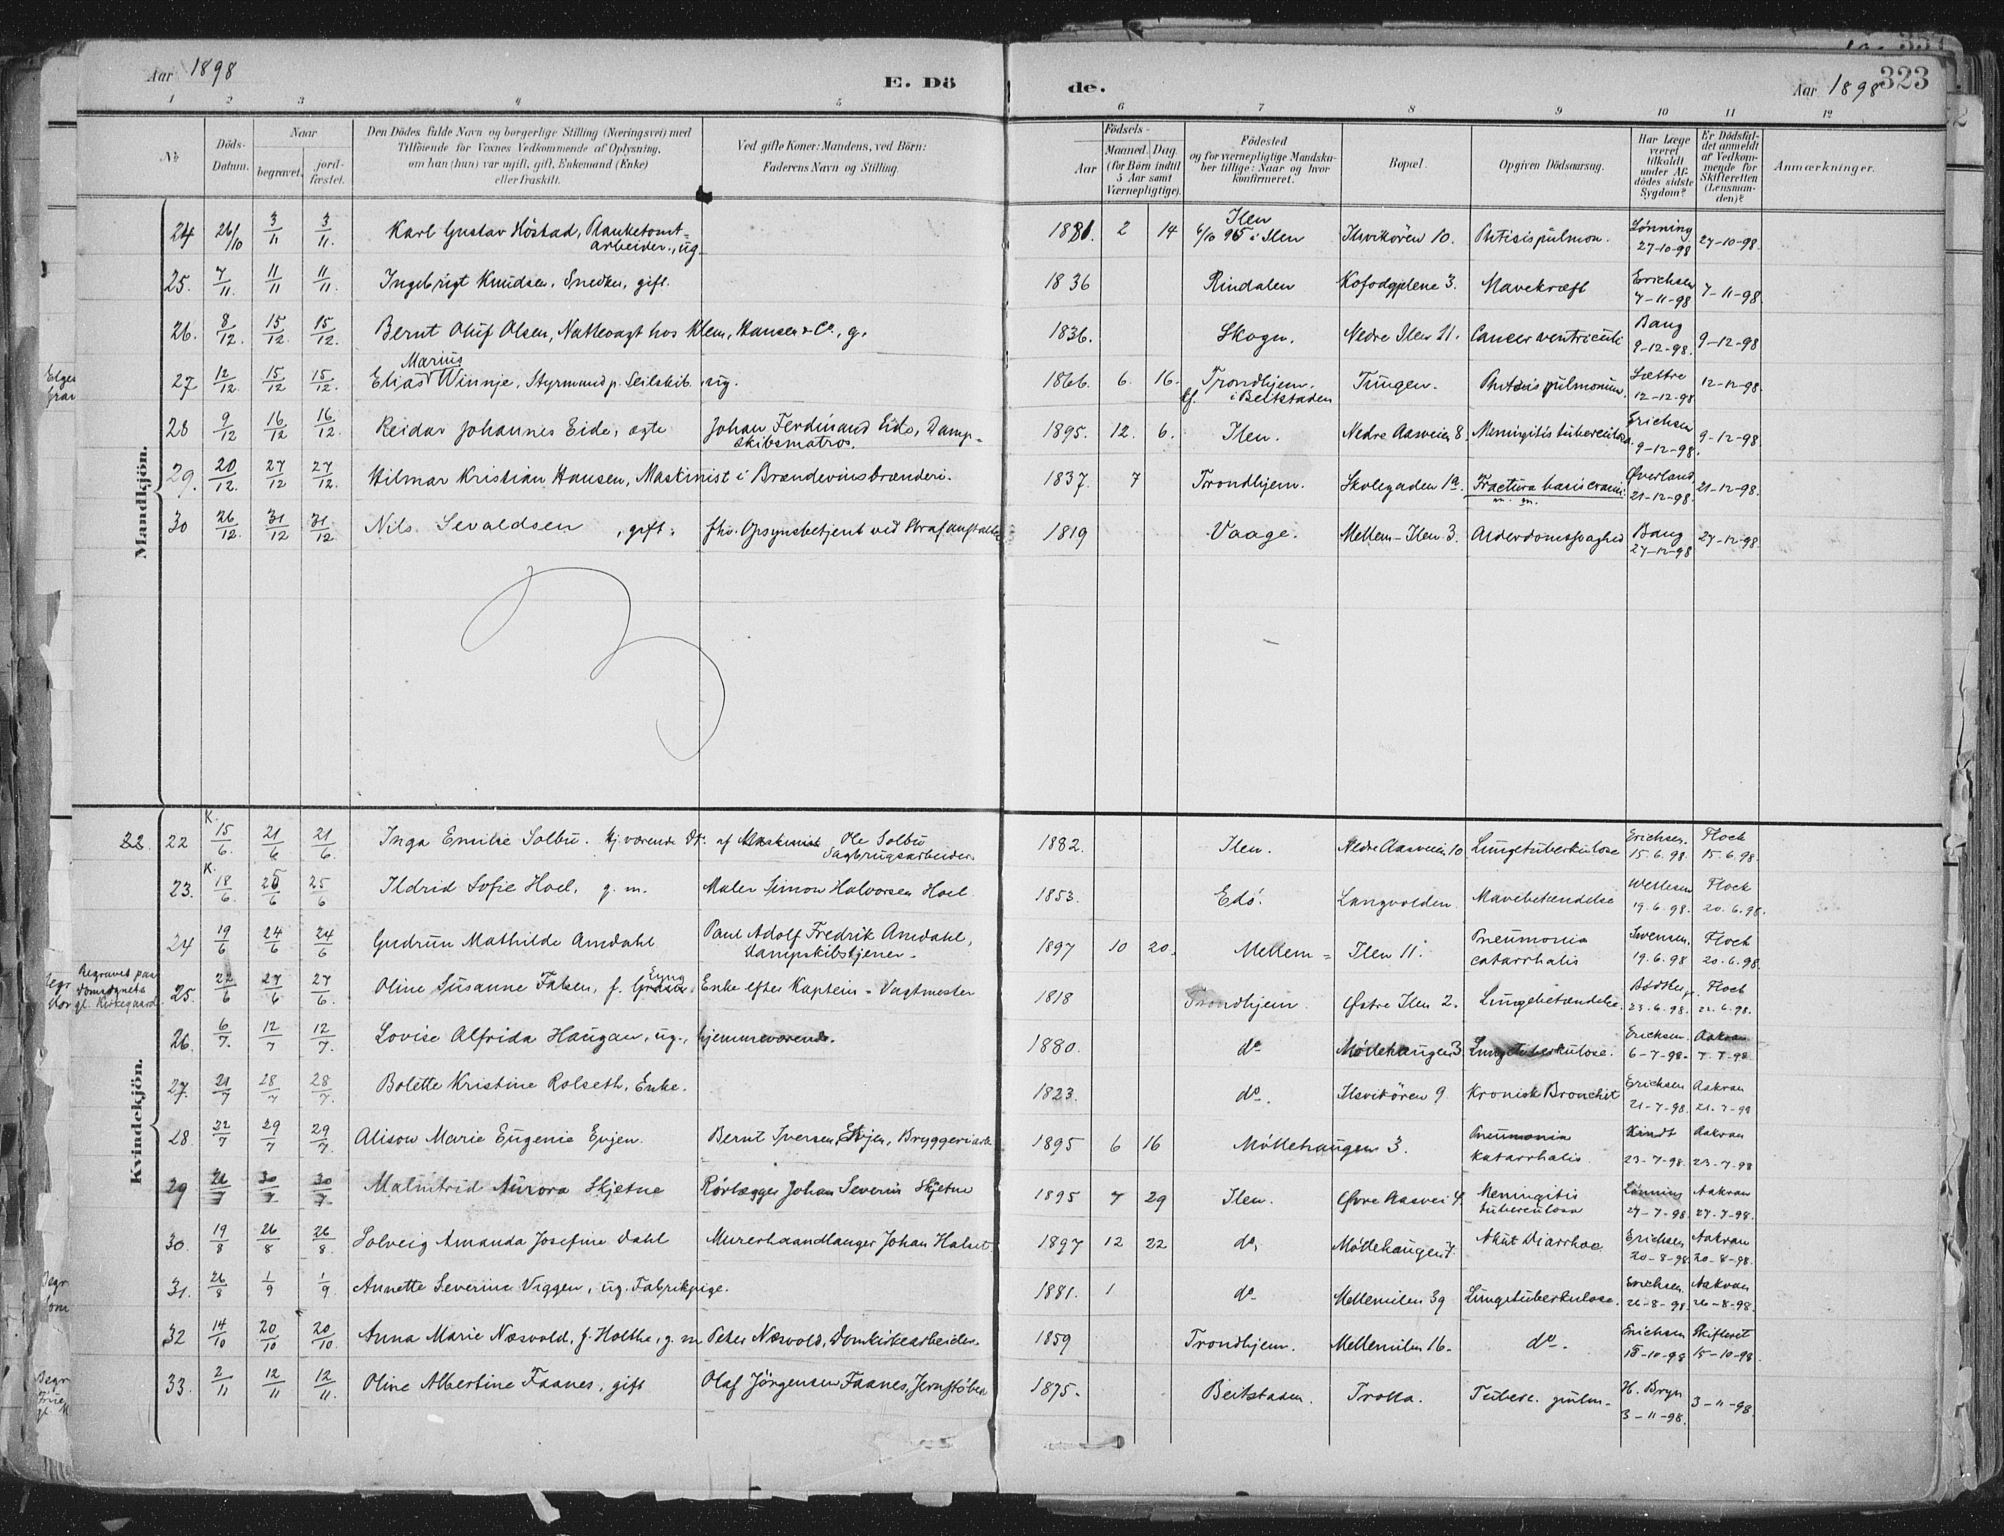 Aar 1898
E. Döde.
Aar 1898
323
1 2 3 4 5 6 7 8 9 10 11 12
No
Döds-Datum.
Naar
begravet.
jordfæstet.
Den Dödes fulde Navn og borgerlige Stilling (Næringsvei) med
Tilföiende for Voxnes Vedkommende af Oplysning,
om han (hun) var ugift, gift, Enkemand (Enke)
eller fraskilt.
Ved gifte Koner: Mandens, ved Börn:
Faderens Navn og Stilling.
Födsels-
Aar
Maaned. Dag.
(for Börn indtil
5 Aar samt
Værnepligtige).
Födested
og for værnepligtige Mandskaber tillige: Naar og hvor
konfirmeret.
Bopæl.
Opgiven Dödsaarsag.
Har Læge
været
tilkaldt
under Afdödes sidste
Sygdom?
Er Dödsfaldet anmeldt
af Vedkommende for
Skifteretten
(Lensmanden)?
Anmærkninger.
Mandkjön.
24 26/10 3/11 3/11. Karl Gustav Höstad, Planketomtarbeider, ug. 1881. 2 14 Ilen 6/10 95 i Ilen Ilsvikören 10. Phtisis pulmon. Lønning 27-10-98 27-10-98.
25. 7/11. 11/11 11/11. Ingebrigt Knudsen, Snedker, gift. 1836 Rindalen Kofodgjelene 3. Mavekræft Erichsen 7-11-98 7-11-98.
26. 8/12. 15/12 15/12. Bernt Oluf Olsen, Nattevagt hos Klem, Hansen & Co, g. 1836. Skogn. Nedre Ilen 11. Cancer ventriculi Bang 9-12-98. 9-12-98
27 12/12. 15/12 15/12. Elias Marius Winnje, Styrmand p. Seilskib, ug. 1866. 6. 16. Trondhjem. kf. i Beitstaden Tungen. Phtisis pulmonum. Sættre 12-12-98 12-12-98.
28 9/12 16/12 16/12. Reidar Johannes Eide, ægte Johan Ferdinand Eide, Dampskibsmatros. 1895. 12. 6. Ilen. Nedre Aasveien 8. Meningitis tuberculosa. Erichsen 9-12-98. 9-12-98.
29. 20/12. 27/12 27/12. Hilmar Kristian Hansen, Maskinist i Brændevinsbrænderi. 1837. 7 Trondhjem. Skolegaden 1a. Fractura basis cranii m. m. Øverland 21-12-98 21-12-98.
30 26/12. 31/12 31/12. Nils Sevaldsen, gift, fhv. Opsynsbetjent ved Strafanstalten 1819 Vaage. Mellem-Ilen 3. Alderdomssvaghed Bang 27-12-98 27-12-98.
Kvindekjön.
22 22 K. 15/6. 21/6 21/6. Inga Emilie Solbu. Hj.værende Dt. af Maskinist Ole Solbu Sagbrugsarbeider. 1882. Ilen. Nedre Aasveien 10 Lungetuberkulose Erichsen. 15.6.98. Floch 15.6.98.
23. K. 18/6. 25/6 25/6 Ildrid Sofie Hoel, g. m. Maler Simon Halvorsen Hoel 1853. Edö. Langvolden. Mavebetændelse 19.6.98. Floch 20.6.98.
24 19/6 24/6 24/6. Gudrun Mathilde Amdahl Paul Adolf Fredrik Amdahl, Dampskibstjener. 1897 10 20. Mellem = Ilen 11. Pneumonia catarrhalis Svensen. 19.6.98 Floch 20.6.98.
Begravet paa Domsognets gl. Kirkegaard
25. 22/6 27/6 27/6. Oline Susanne Falsen, f. Enke efter Kaptein-Vagtmester 1818 Trondhjem. Østre Ilen 2. Lungebetændelse. 23.6.98. Floch
26. 6/7. 12/7 12/7. Lovise Alfrida Haugan, ug., hjemmeværende. 1880. do Møllehaugen 3. Lungetuberkulose. Erichsen. 6-7-98. Aakran 7-7-98
27. 21/7 28/7 28/7. Bolette Kristine Rolseth, Enke. 1823. do. Ilsvikören 9. Kronisk Bronchit Erichsen 21-7-98. Aakran
28. 22/7 29/7 29/7. Alison Marie Eugenie Evjen. Bernt Iversen Evjen, Bryggeriarb. 1895 6 16 Møllehaugen 3. Pneumonia katarrhalis. Kindt 23-7-98. Aakran 23-7-98
29 30/7 30/7. Malmfrid Aurora Skjetne Rörlægger Johan Severin Skjetne 1895 7 29 Ilen. Øvre Aasvei 4. Meningitis tuberculosa Lønning 27-7-98. Aakran 27-7-98.
30. 19/8 26/8 26/8. Solveig Amanda Josefine Dahl Murerhaandlanger Johan 1897 12 22 do, Møllehaugen 7. Akut Diarrhoe. Erichsen 20-8-98. Aakran 20-8-98.
31. 26/8 1/9 1/9. Annette Severine Viggen, ug. Fabrikpige. 1881. 1 do Mellemilen 39 Lungetuberkulose. Erichsen 26-8-98. Aakran 26-8-98.
32 14/10 20/10 20/10. Anna Marie Næsvold, f. Holthe, g. m Peter Næsvold, Domkirkearbeider. 1859 Trondhjem. Mellemilen 16. do. Erichsen 15-10-98 Skifteret 15-10-98.
33. 2/11 12/11 12/11. Oline Albertine Faanes, gift Olaf Jörgensen Faanes, Jernstöber 1875. Beitstaden. Trolla. Tuberc. pulm. H. Bryn 3-11-98. 3-11-98.